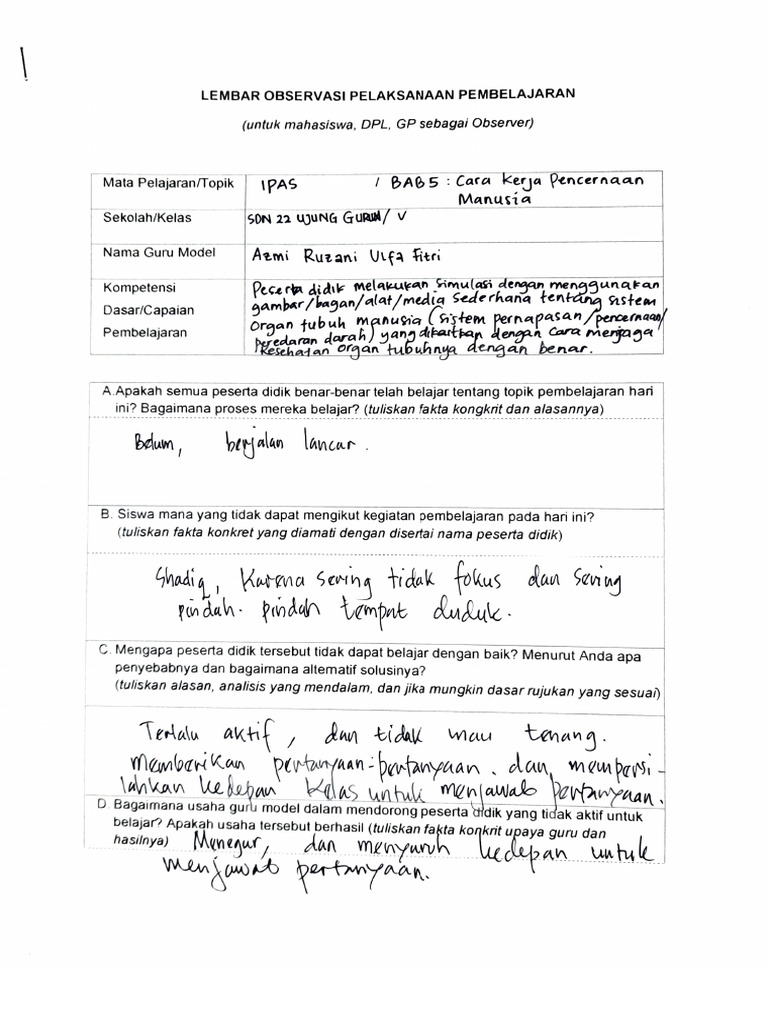 LEMBAR OBSERVASI PELAKSANAAN PEMBELAJARAN
(untuk mahasiswa, DPL, GP sebagai Observer)
Mata Pelajaran/Topik IPAS / BAB 5 : Cara Kerja Pencernaan
Manusia
Sekolah/Kelas SDN 22 UJUNG GURUN/ V
Nama Guru Model Azmi Ruzani Ulfa Fitri
Kompetensi Peserta didik melakukan simulasi dengan menggunakan
Dasar/Capaian gambar/bagan/alat/media sederhana tentang sistem
Pembelajaran organ tubuh manusia (sistem pernapasan/pencernaan/
peredaran darah) yang dikaitkan dengan cara menjaga
kesehatan organ tubuhnya dengan benar.
A.Apakah semua peserta didik benar-benar telah belajar tentang topik pembelajaran hari
ini? Bagaimana proses mereka belajar? (tuliskan fakta kongkrit dan alasannya)
Belum, berjalan lancar.
B. Siswa mana yang tidak dapat mengikut kegiatan pembelajaran pada hari ini?
(tuliskan fakta konkret yang diamati dengan disertai nama peserta didik)
Shadiq, Karena sering tidak fokus dan sering
pindah- pindah tempat duduk.
C. Mengapa peserta didik tersebut tidak dapat belajar dengan baik? Menurut Anda apa
penyebabnya dan bagaimana alternatif solusinya?
(tuliskan alasan, analisis yang mendalam, dan jika mungkin dasar rujukan yang sesuai)
Terlalu aktif, dan tidak mau tenang.
memberikan pertanyaan-pertanyaan. dan mempersi-
lahkan kedepan kelas untuk menjawab pertanyaan.
D. Bagaimana usaha guru model dalam mendorong peserta didik yang tidak aktif untuk
belajar? Apakah usaha tersebut berhasil (tuliskan fakta konkrit upaya guru dan
hasilnya) Menegur, dan menyuruh kedepan untuk
menjawab pertanyaan.